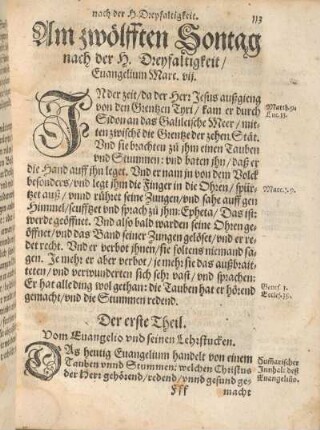 nach der H. Dreyfaltigkeit. 113
Am zwölfften Sontag
nach der H. Dreyfaltigkeit /
Euangelium Mart. vij.
IN Der zeit / da der Herr Jesus außgieng
von den Grentzen Tyri / kam er durch
Sidon an das Galileische Meer / mit-
ten zwischē die Grentze der zehen Stät.
Und sie brachten zu ihm einen Tauben
vnd Stummen: vnd baten ihn / daß er
die Hand auff ihn leget. Vnd er nam in von dem Volck
besonders / vnd legt ihm die Finger in die Ohren / spür-
tzet auß / vnnd rühret seine Zungen / vnd sahe auff gen
Himmel / seufftzet vnd sprach zu jhm: Epheta / Das ist:
werde geöffnet. Vnd also bald warden seine Ohren ge-
öffnet / vnd das Band seiner Zungen gelöset / vnd er re-
det recht. Vnd er verbot ihnen / sie soltens niemand sa-
gen. Je mehr er aber verbot / je mehr sie das außbrait-
teten / vnd verwunderten sich sehr vast / vnd sprachen:
Er hat alle ding wol gethan: die Tauben hat er hörend
gemacht / vnd die Stummen redend.
Matth.9.
Luc.11.
Marc.5.9.
Genes. 1.
Eccles.39.
Der erste Theil.
Vom Euangelio vnd seinen Lehrstucken.
DAs heutig Euangelium handelt von einem
Tauben vnnd Stummen: welchen Christus
der Herr gehörend / redend / vnnd gesund ge-
Summarischer
Innhalt deß
Euangeliu.
fff macht